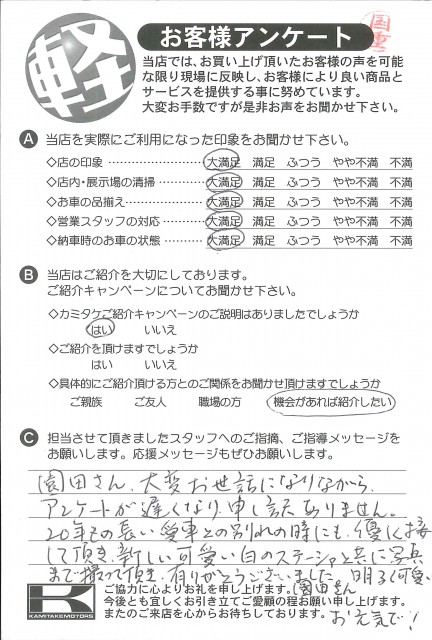 軽
お客様アンケート
当店では、お買い上げ頂いたお客様の声を可能
な限り現場に反映し、お客様により良い商品と
サービスを提供する事に努めています。
大変お手数ですが是非お声をお聞かせ下さい。
A 当店を実際にご利用になった印象をお聞かせ下さい。
◇店の印象 大満足 満足 ふつう やや不満 不満
◇店内・展示場の清掃 大満足 満足 ふつう やや不満 不満
◇お車の品揃え 大満足 満足 ふつう やや不満 不満
◇営業スタッフの対応 大満足 満足 ふつう やや不満 不満
◇納車時のお車の状態 大満足 満足 ふつう やや不満 不満
B 当店はご紹介を大切にしております。
ご紹介キャンペーンについてお聞かせ下さい。
◇カミタケご紹介キャンペーンのご説明はありましたでしょうか
はい いいえ
◇ご紹介を頂けますでしょうか
はい いいえ
◇具体的にご紹介頂ける方とのご関係をお聞かせ頂けますでしょうか
ご親族 ご友人 職場の方 機会があれば紹介したい
C 担当させて頂きましたスタッフへのご指摘、ご指導メッセージを
お願いします。応援メッセージもぜひお願いします。
園田さん、大変お世話になりながら、
アンケートが遅くなり、申し訳ありません。
20年もの長い愛車との別れの時にも、優しく接
して頂き、新しい可愛い白のステーシャと共に写真
まで撮って頂き、有りがとうございました。明るく可愛い
園田さん
お元気で!
K
KAMITAKEMOTORS
ご協力に心よりお礼を申し上げます。
今後とも宜しくお引き立てご愛顧の程お願い申し上げます。
またのご来店を心からお待ちしております。